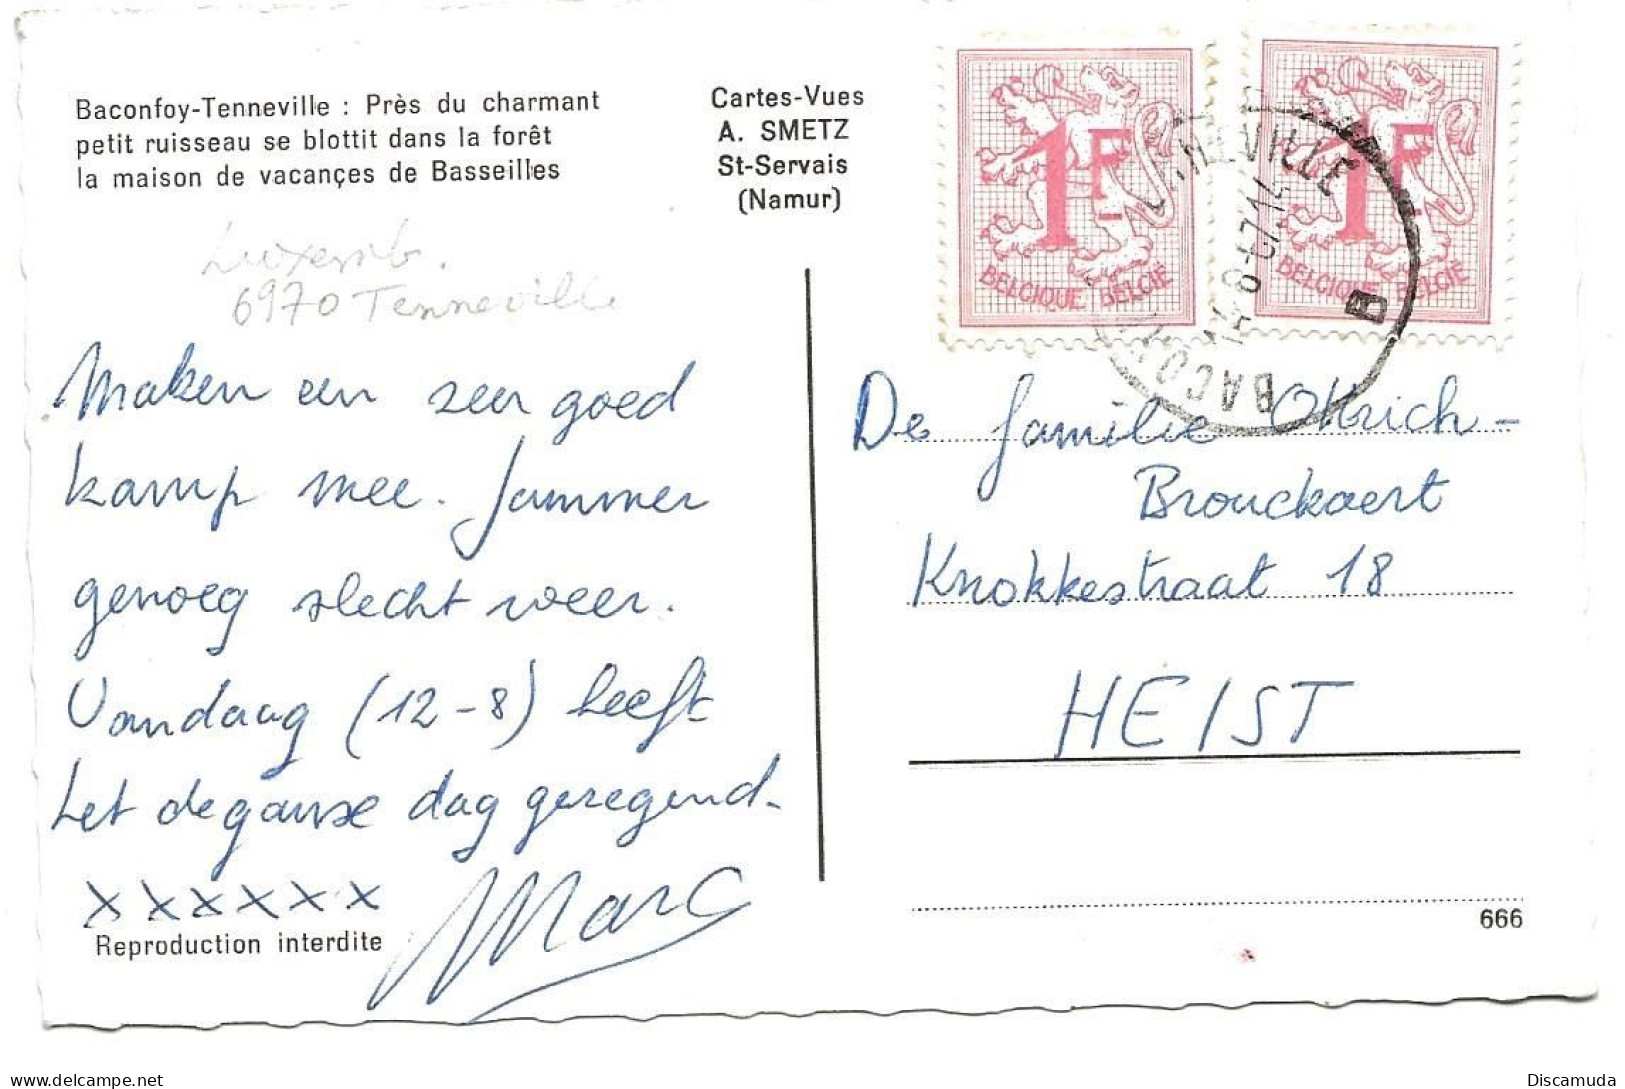 Baconfoy-Tenneville : Près du charmant
petit ruisseau se blottit dans la forêt
la maison de vacançes de Basseilles
Cartes-Vues
A. SMETZ
St-Servais
(Namur)
1F
BELGIQUE BELGIË
1F
BELGIQUE BELGIË
B
Luxemb.
6970 Tenneville
Maken een zeer goed
kamp mee. Jammer
genoeg slecht weer.
Vandaag (12-8) heeft
het de ganse dag geregend.
x x x x x x Marc
Reproduction interdite
De familie Ottrich-
Brouckaert
Knokkestraat 18
HEIST
666
delcampe.net
Discamuda